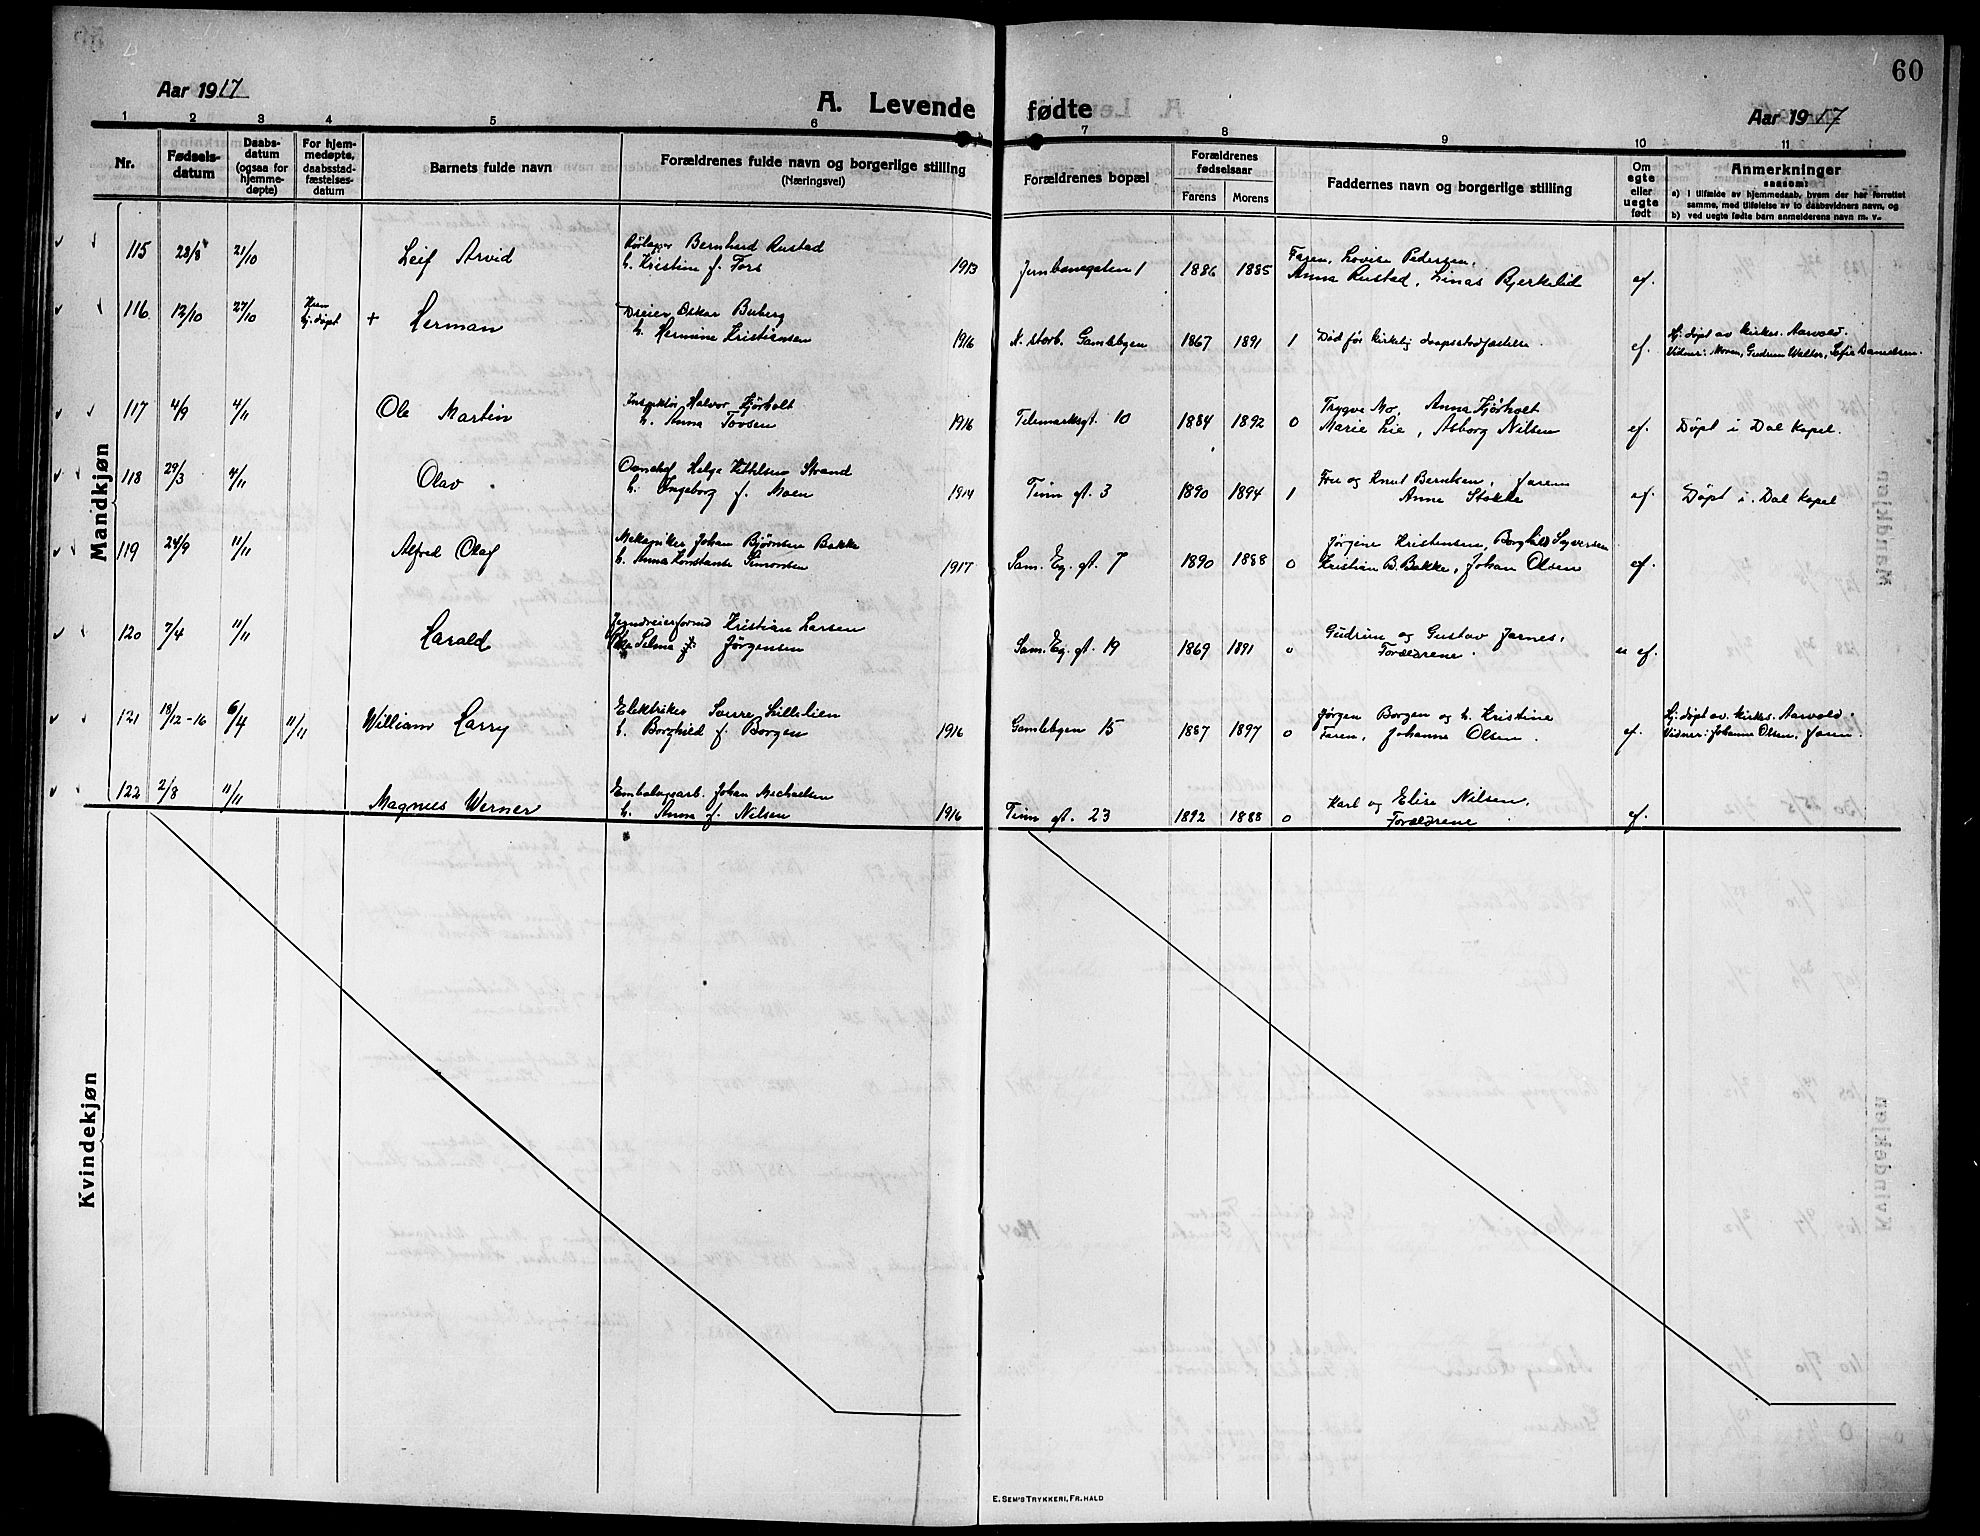 60
Aar 1917
A. Levende fødte
Aar 1917
1 2 3 4 5 6 7 8 9 10 11
Nr.
Fødselsdatum
Daabsdatum (ogsaa for hjemmedøpte)
For hjemmedøpte, daabsstadfæstelsesdatum
Barnets fulde navn
Forældrenes fulde navn og borgerlige stilling
(Næringsvei)
Forældrenes bopæl
Forældrenes fødselsaar
Farens
Morens
Faddernes navn og borgerlige stilling
Om egte eller uegte født
Anmerkninger
saasom:
a) I tilfælde av hjemmedaab, hvem der har forrettet samme, med tilføielse av to daabsvidners navn, og
b) ved uegte fødte barn anmelderens navn m. v.
Mandkjøn
115 28/8 21/10 Leif Arvid
Bernhard Rustad
h. Kristin f. Tors 1913
Jernbanegaten 1 1886 1885
Faren, Lovise Pedersen,
Anna Rustad, Linas Bjerkelid
ef.
116 12/10 27/10 Kun hj. døpt + Herman
Dreier Oskar Buberg
h. Hermine Kristiansen 1916
N. storb. Gamlebyen 1867 1891 1
Død før kirkelig daapsstadfæstelse.
ef.
Hj. døpt av kirkes. Aarvold.
Vidner: Moren, Gudrun Walter, Sofie Danielsen.
117 4/9 4/11 Ole Martin
Inspektør Halvor Fjørholt
h. Anna Tovsen 1916
Telemarksgt. 10 1884 1892 0
Trygve Mo, Anna Fjørholt
Marie Lie, Asborg Nilsen
ef.
Døpt i Dal Kapel.
118 29/3 4/11 Olav
Helge Kittilsen Strand
h. Ingeborg f. Moen 1914
Tinn gt. 3 1890 1894 1
Fru og Knut Berntsen, faren
Anne Stokke
ef.
Døpt i Dal Kapel
119 24/9 11/11 Alfred Olaf
Mekaniker Johan Bjørnsen Bakke
h. Anna Konstanse Simonsen 1917
Sam. Eg. gt. 7 1890 1888 0
Jørgine Kristensen, Borghild Syversen
Kristian B. Bakke, Johan Olsen
ef.
120 7/4 11/11 Harald
Kristian Larsen
Selma f. Jørgensen
Sam. Eg. gt. 19 1869 1891 0
Gudrun og Gustav Jarnes,
Forældrene.
u ef.
121 18/12-16 6/4 11/11 William Harry
Elektriker Sverre Lillelien
h. Borghild f. Borgen 1916
Gamlebyen 15 1887 1897 0
Jørgen Borgen og h. Kristine
Faren, Johanne Olsen.
ef.
Hj. døpt av kirkes. Aarvold.
Vidner: Johanne Olsen, faren.
122 2/8 11/11 Magnus Werner
Emballagearb. Johan Michaelsen
h. Anna f. Nilsen 1916
Tinn gt. 23 1892 1888 0
Karl og Elise Nilsen,
Forældrene
ef.
Kvindekjøn
E. SEM'S TRYKKERI, FR.HALD